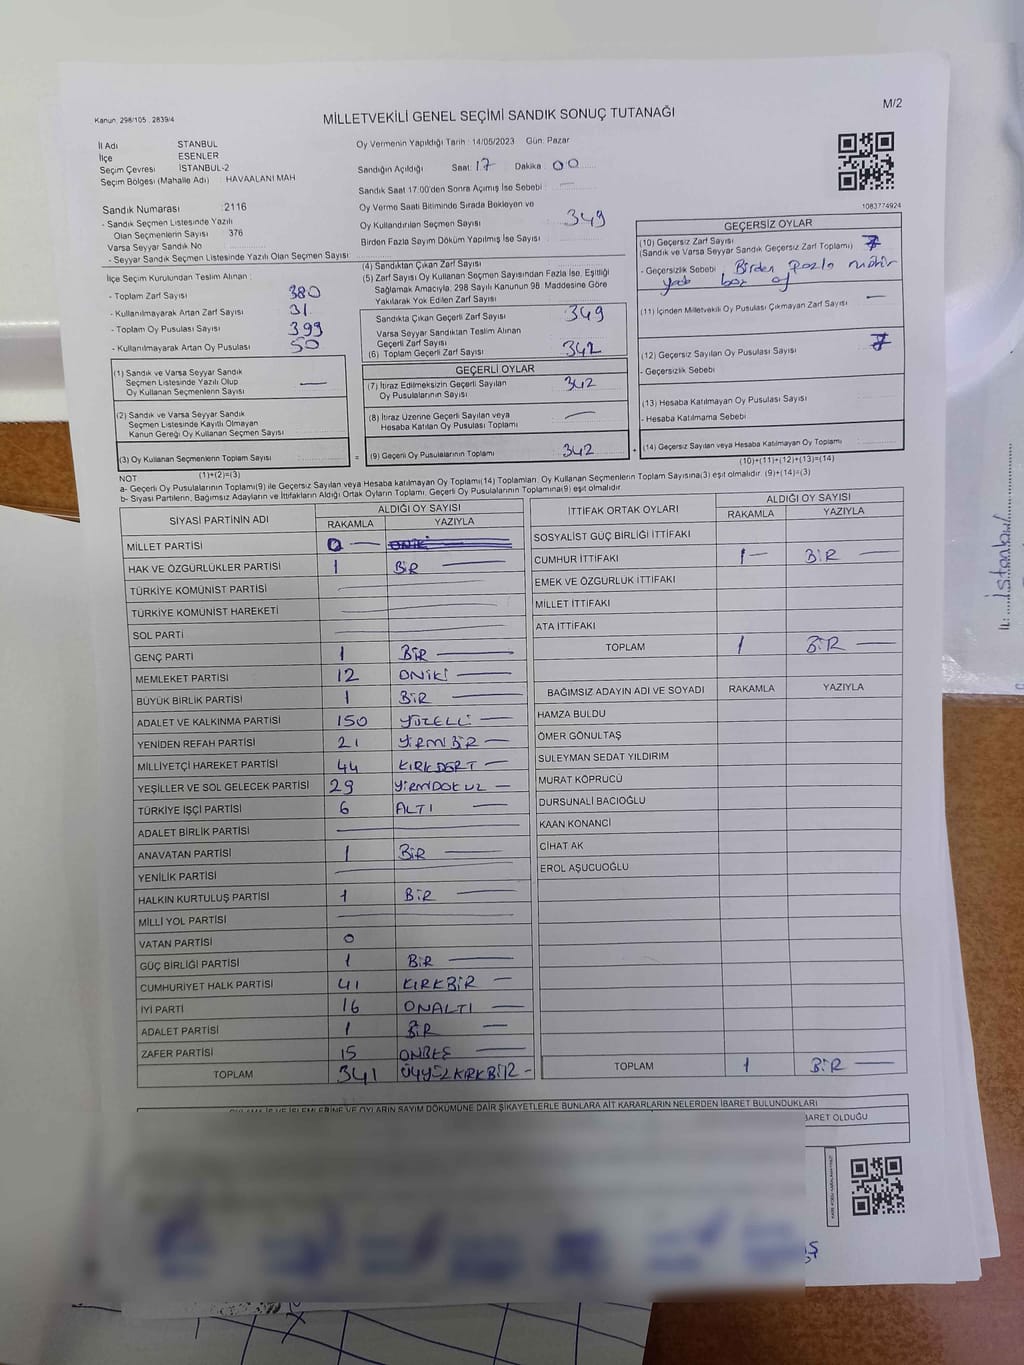 Kanun, 298/105 , 2839/4
MİLLETVEKİLİ GENEL SEÇİMİ SANDIK SONUÇ TUTANAĞI
M/2
İl Adı STANBUL
İlçe ESENLER
Seçim Çevresi İSTANBUL-2
Seçim Bölgesi (Mahalle Adı) : HAVAALANI MAH
Sandık Numarası : 2116
- Sandık Seçmen Listesinde Yazılı
Olan Seçmenlerin Sayısı 376
Varsa Seyyar Sandık No
- Seyyar Sandık Seçmen Listesinde Yazılı Olan Seçmen Sayısı
Oy Vermenin Yapıldığı Tarih : 14/05/2023 Gün: Pazar
Sandığın Açıldığı Saat: 17 Dakika : 00
Sandık Saat 17.00'den Sonra Açımış İse Sebebi : —
Oy Verme Saati Bitiminde Sırada Bekleyen ve
Oy Kullandırılan Seçmen Sayısı 349
Birden Fazla Sayım Döküm Yapılmış İse Sayısı
1083774924
İlçe Seçim Kurulundan Teslim Alınan :
- Toplam Zarf Sayısı 380
- Kullanılmayarak Artan Zarf Sayısı 31
- Toplam Oy Pusulası Sayısı 399
- Kullanılmayarak Artan Oy Pusulası 50
(1) Sandık ve Varsa Seyyar Sandık
Seçmen Listesinde Yazılı Olup
Oy Kullanan Seçmenlerin Sayısı —
(2) Sandık ve Varsa Seyyar Sandık
Seçmen Listesinde Kayıtlı Olmayan
Kanun Gereği Oy Kullanan Seçmen Sayısı
(3) Oy Kullanan Seçmenlerin Toplam Sayısı
(1)+(2)=(3)
(4) Sandıktan Çıkan Zarf Sayısı
(5) Zarf Sayısı Oy Kullanan Seçmen Sayısından Fazla İse, Eşitliği
Sağlamak Amacıyla, 298 Sayılı Kanunun 98. Maddesine Göre
Yakılarak Yok Edilen Zarf Sayısı
Sandıkta Çıkan Geçerli Zarf Sayısı 349
Varsa Seyyar Sandıktan Teslim Alınan
Geçerli Zarf Sayısı
(6) Toplam Geçerli Zarf Sayısı 342
GEÇERLİ OYLAR
(7) İtiraz Edilmeksizin Geçerli Sayılan
Oy Pusulalarının Sayısı 342
(8) İtiraz Üzerine Geçerli Sayılan veya
Hesaba Katılan Oy Pusulası Toplamı —
= (9) Geçerli Oy Pusulalarının Toplamı 342 +
GEÇERSİZ OYLAR
(10) Geçersiz Zarf Sayısı
(Sandık ve Varsa Seyyar Sandık Geçersiz Zarf Toplamı) 7
- Geçersizlik Sebebi Birden Fazla mühür
yada boş oy
(11) İçinden Milletvekili Oy Pusulası Çıkmayan Zarf Sayısı —
(12) Geçersiz Sayılan Oy Pusulası Sayısı 7
- Geçersizlik Sebebi
(13) Hesaba Katılmayan Oy Pusulası Sayısı
- Hesaba Katılmama Sebebi
(14) Geçersiz Sayılan veya Hesaba Katılmayan Oy Toplamı
(10)+(11)+(12)+(13)=(14)
NOT
a- Geçerli Oy Pusulalarının Toplamı(9) ile Geçersiz Sayılan veya Hesaba katılmayan Oy Toplamı(14) Toplamları, Oy Kullanan Seçmenlerin Toplam Sayısına(3) eşit olmalıdır. (9)+(14)=(3)
b- Siyasi Partilerin, Bağımsız Adayların ve İttifakların Aldığı Ortak Oyların Toplamı, Geçerli Oy Pusulalarının Toplamına(9) eşit olmalıdır.
SİYASİ PARTİNİN ADI ALDIĞI OY SAYISI
RAKAMLA YAZIYLA
MİLLET PARTİSİ 0 —
HAK VE ÖZGÜRLÜKLER PARTİSİ 1 BİR
TÜRKİYE KOMÜNİST PARTİSİ
TÜRKİYE KOMÜNİST HAREKETİ
SOL PARTİ
GENÇ PARTİ 1 BİR
MEMLEKET PARTİSİ 12 ONİKİ
BÜYÜK BİRLİK PARTİSİ 1 BİR
ADALET VE KALKINMA PARTİSİ 150 YÜZELLİ
YENİDEN REFAH PARTİSİ 21 YİRMİBİR
MİLLİYETÇİ HAREKET PARTİSİ 44 KIRKDÖRT
YEŞİLLER VE SOL GELECEK PARTİSİ 29 YİRMİDOKUZ
TÜRKİYE İŞÇİ PARTİSİ 6 ALTI
ADALET BİRLİK PARTİSİ
ANAVATAN PARTİSİ 1 BİR
YENİLİK PARTİSİ
HALKIN KURTULUŞ PARTİSİ 1 BİR
MİLLİ YOL PARTİSİ
VATAN PARTİSİ 0
GÜÇ BİRLİĞİ PARTİSİ 1 BİR
CUMHURİYET HALK PARTİSİ 41 KIRKBİR
İYİ PARTİ 16 ONALTI
ADALET PARTİSİ 1 BİR
ZAFER PARTİSİ 15 ONBEŞ
TOPLAM 341 ÜÇYÜZKIRKBİR
İTTİFAK ORTAK OYLARI ALDIĞI OY SAYISI
RAKAMLA YAZIYLA
SOSYALİST GÜÇ BİRLİĞİ İTTİFAKI
CUMHUR İTTİFAKI 1 BİR
EMEK VE ÖZGÜRLÜK İTTİFAKI
MİLLET İTTİFAKI
ATA İTTİFAKI
TOPLAM 1 BİR
BAĞIMSIZ ADAYIN ADI VE SOYADI RAKAMLA YAZIYLA
HAMZA BULDU
ÖMER GÖNULTAŞ
SÜLEYMAN SEDAT YILDIRIM
MURAT KÖPRÜCÜ
DURSUNALİ BACIOĞLU
KAAN KONANCİ
CİHAT AK
EROL AŞUCUOĞLU
TOPLAM 1 BİR
OYLAMA İŞ VE İŞLEMLERİNE VE OYLARIN SAYIM DÖKÜMÜNE DAİR ŞİKAYETLERLE BUNLARA AİT KARARLARIN NELERDEN İBARET BULUNDUKLARI
BARET OLDUĞU
İL: İstanbul